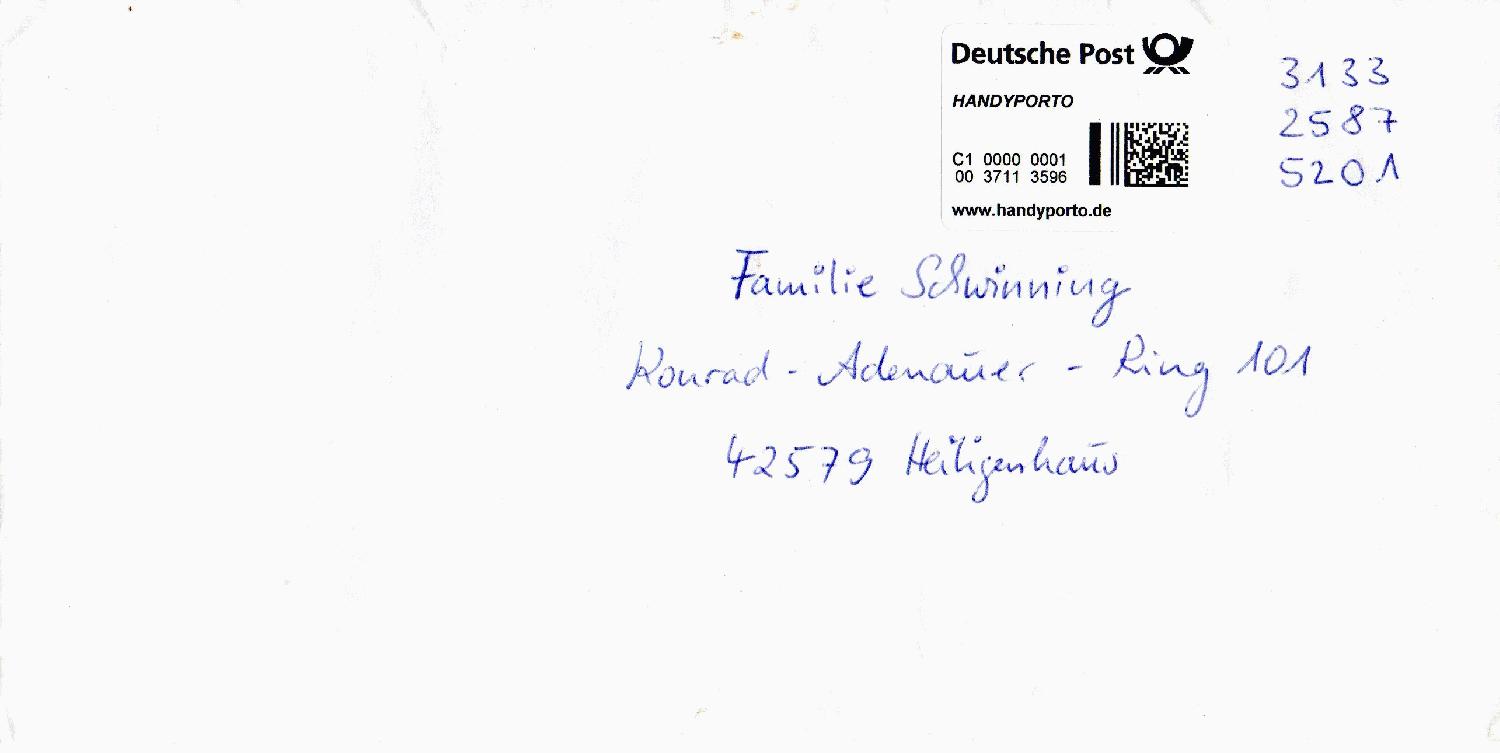 Deutsche Post
HANDYPORTO
C1 0000 0001
00 3711 3596
www.handyporto.de
3133
2587
5201
Familie Schwinning
Konrad - Adenauer - Ring 101
42579 Heiligenhaus